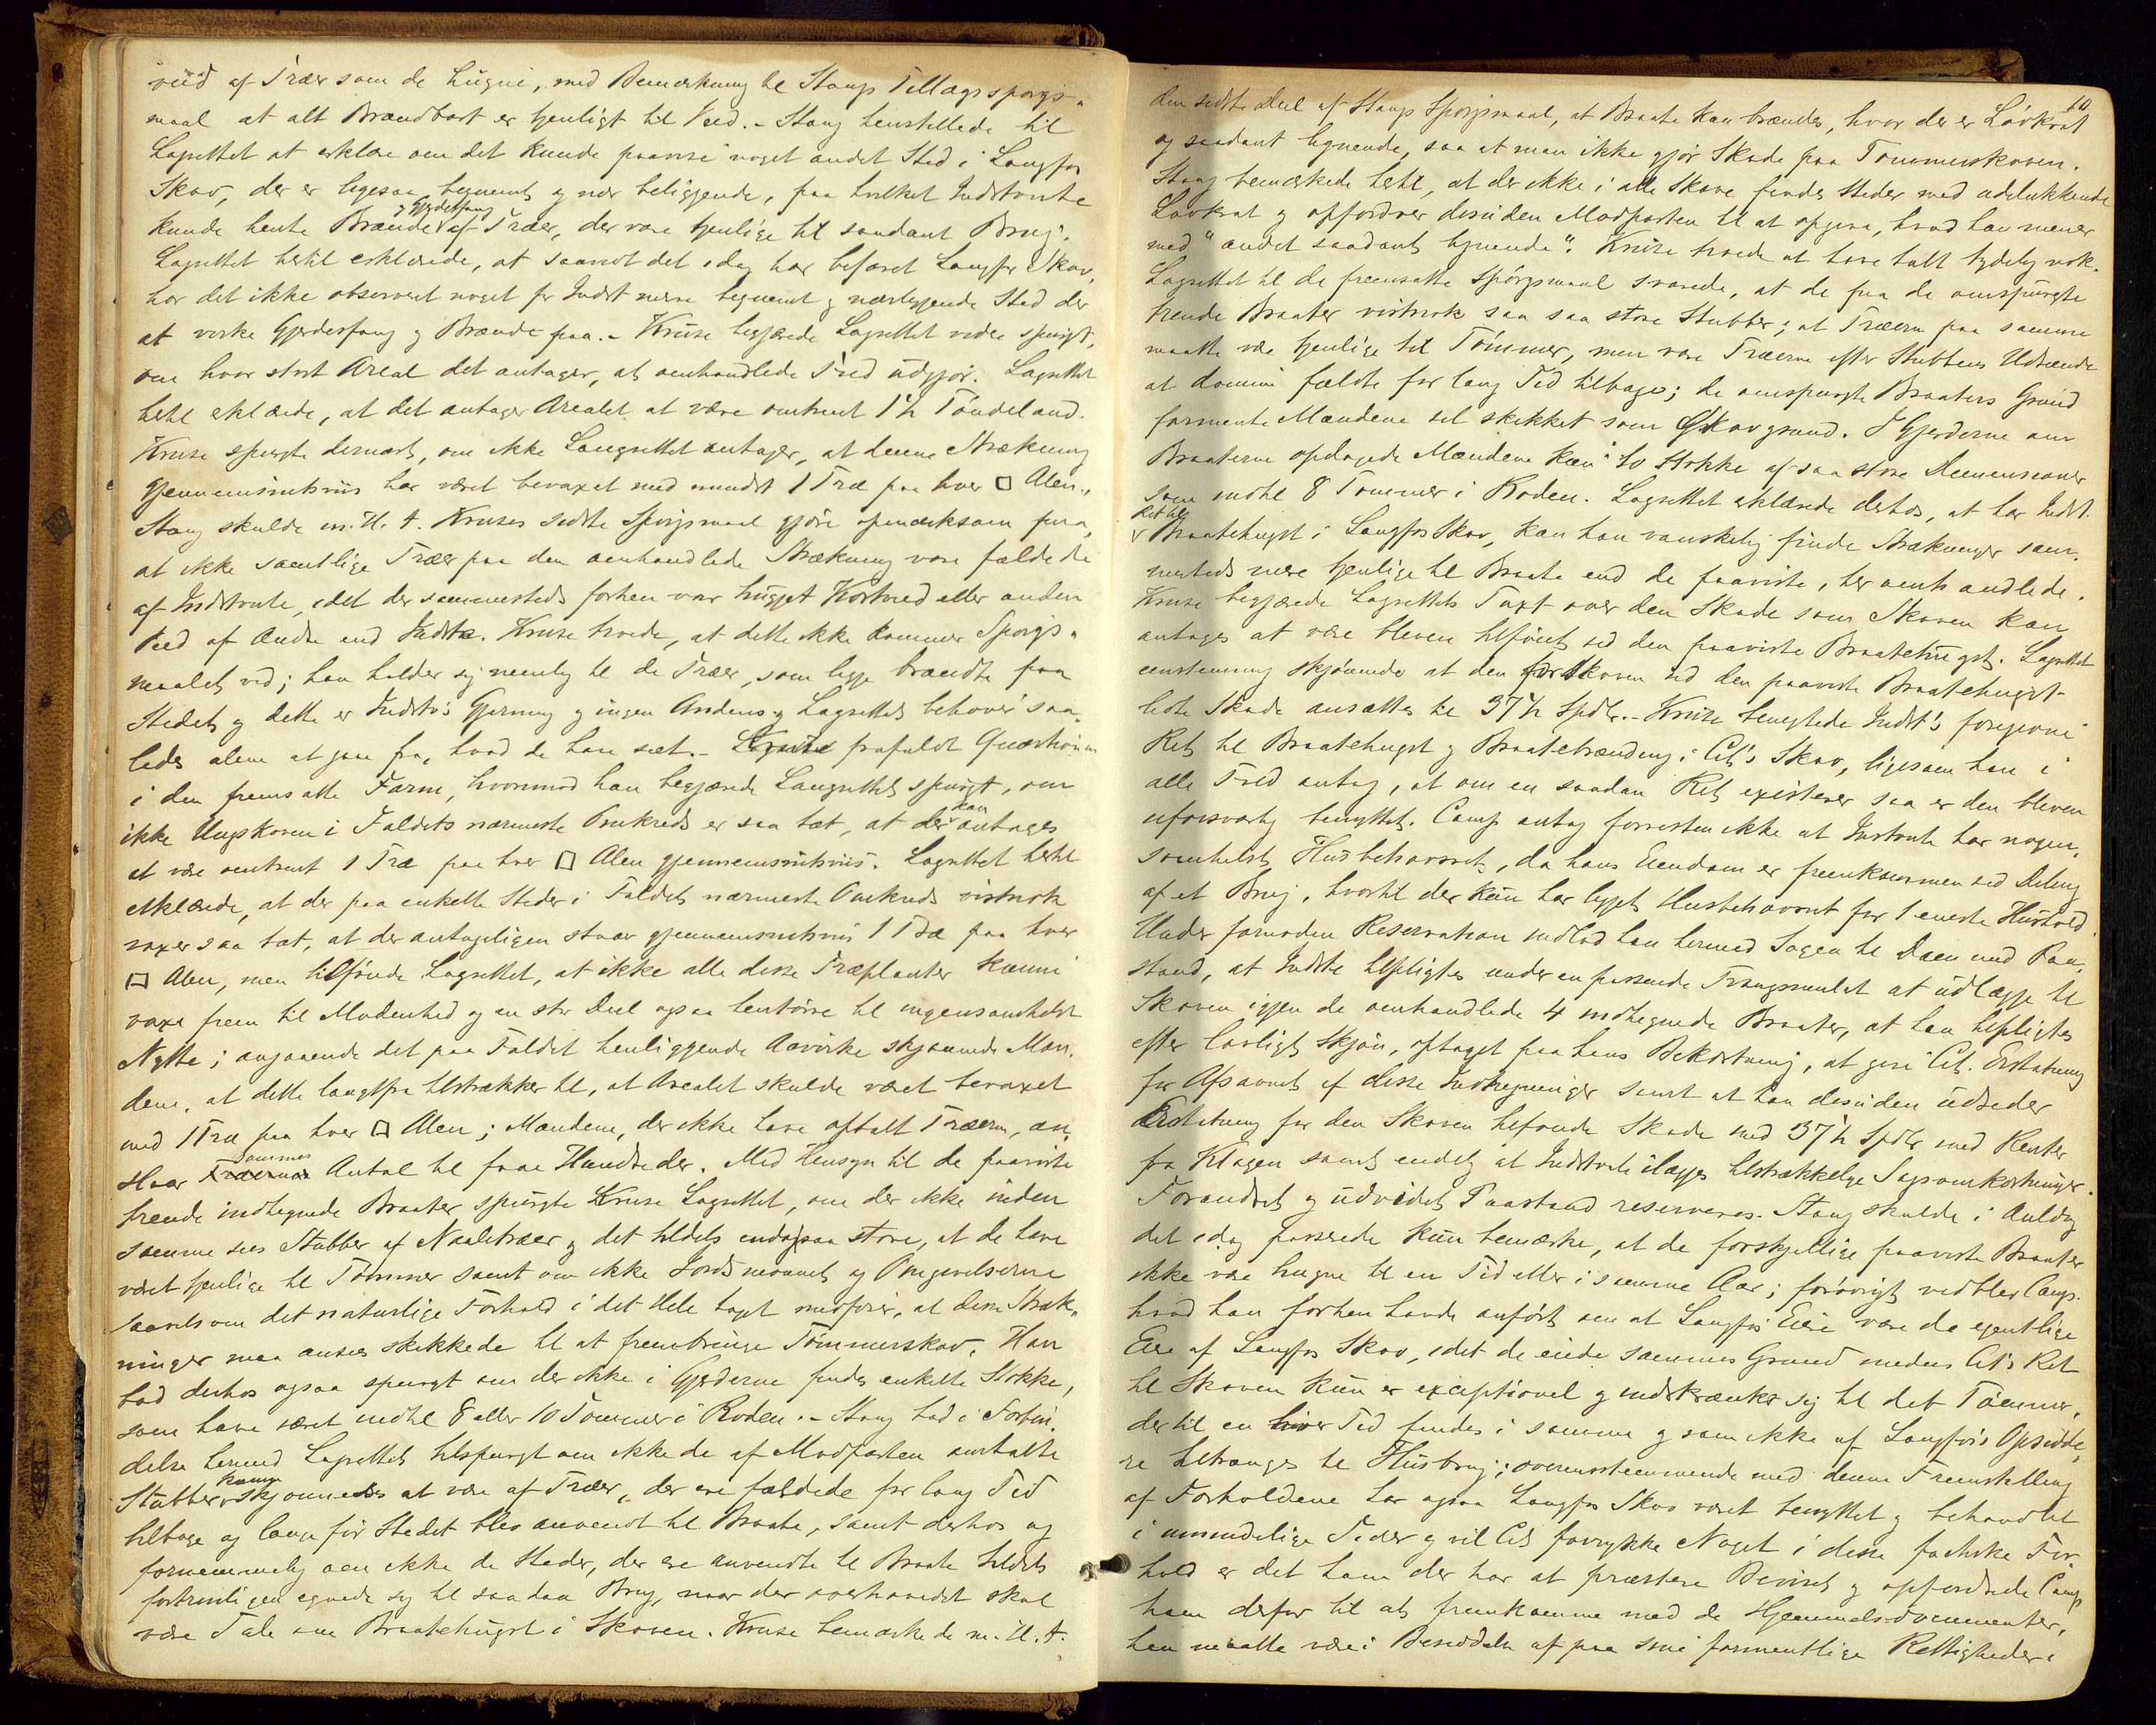 ved af Træer som de hugne, med Bemærkning til Stangs Tillægsspørgs-
maal at alt Brændbart er tjenligt til Ved. - Stang henstillede til
Lagrettet at erklære om det kunde paavise noget andet Sted i Langfos
Skov, der er ligesaa beqvemt og nær beliggende, fra hvilket Indstevnte
kunde hente Brænde og Gjerdesfang af Træer, der vare tjenlige til saadant Brug.
Lagrettet hertil erklærede, at saavidt det idag har befaret Langfos Skov,
har det ikke observeret noget for Indst nære beqvemt og nærliggende Sted der
at virke Gjerdesfang og Brænde paa. - Kruse begjærede Lagrettet videre spurgt,
om hvor stort Areal det antager, at omhandlede Fæld udgjør. Lagrettet
hertil erklærede, at det antager Arealet at være omtrent 1 1/2 Tøndeland.
Kruse spurgte dernæst, om ikke Laugrettet antager, at denne Strækning
gjennemsnitsviis har været bevoxet med mindst 1 Træ paa hver □ Alen.,
Stang skulde m. H. t. Kruses sidste Spørgsmaal gjøre opmærksom paa,
at ikke samtlige Træer paa den omhandlede Strækning vare fældede
af Indstevnte, idet der sammesteds forhen var hugget Kortved eller anden
Ved af Andre end Indstn. Kruse troede, at dette ikke kommer Spørgs-
maalet ved; han holder sig nemlig til de Træer, som ligge brændte paa
Stedet og dette er Indstv's Gjerning og ingen Andens og Lagrettet behøver saa-
ledes alene at gaae fra, hvad de have seet. - Kruse frafaldt Quæstionen
i den fremsatte Form, hvorimod han begjærede Laugrettet spurgt, om
ikke Ungskoven i Faldets nærmeste Omkreds er saa tæt, at der kan antages
at være omtrent 1 Træ paa hver □ Alen gjennemsnitsviis. Lagrettet hertil
erklærede, at der paa enkelte Steder i Faldets nærmeste Omkreds vistnok
voxer saa tæt, at der antageligen staaer gjennemsnitsviis 1 Træ paa hver
□ Alen, men tilføiede Lagrettet, at ikke alle disse Træplanter kunne
voxe frem til Modenhed og en stor Deel ogsaa bentørre til ingensomhelst
Nytte; angaaende det paa Faldet henliggende Avirke skjønnede Mæn-
dene, at dette langtfra tilstrækker til, at Arealet skulde været bevoxet
med 1 Træ paa hver □ Alen; Mændene, der ikke have optalt Træerne, an-
slaar Træernes sammes Antal til faae Hundreder. Med Hensyn til de paaviste
trende indhegnede Braater spurgte Kruse Lagrettet, om der ikke inden
samme sees Stubber af Naaletræer og det tildels endog saa store, at de have
været tjenlige til Tømmer samt om ikke Jordsmonnet og Omgivelserne
saavelsom det naturlige Forhold i det Hele taget medfører, at disse Stræk-
ninger maa ansees skikkede til at frembringe Tømmerskov. Han
bad derhos ogsaa spurgt om der ikke i Gjerderne findes enkelte Stokke,
som have været indtil 8 eller 10 Tommer i Roden. - Stang bad i Forbin-
delse hermed Lagrettet tilspurgt om ikke de af Modparten omtalte
Stubber kunne skjønnes at være af Træer, der ere fældede for lang Tid
tilbage og længe før Stedet blev anvendt til Braate, samt derhos og
fornemmelig om ikke de Steder, der ere anvendte til Braate tildels
fortrinligen egnede sig til saadan Brug, naar der overhovedet skal
være Tale om Braatehugst i Skoven. Kruse bemærkede m. H. t.
10
den sidste Deel af Stangs Spørgsmaal, at Braate kan brændes, hvor der er Løvkrat
og saadant lignende, saa at man ikke gjør Skade paa Tømmerskoven.
Stang bemærkede hertil, at der ikke i alle Skove findes Steder med udelukkende
Løvkrat og opfordrer desuden Modparten til at opgive, hvad han mener
med "andet saadant lignende". Kruse troede at have talt tydelig nok.
Lagrettet til de fremsatte Spørgsmaal svarede, at de paa de omspurgte
trende Braater vistnok saa saa store Stubber, at Træerne paa samme
maatte være tjenlige til Tømmer, men vare Træerne efter Stubbens Udseende
at dømme fældte for lang Tid tilbage; de omspurgte Braaters Grund
formente Mændene vel skikket som Skovgrund. I Gjerderne om
Braaterne opdagede Mændene kun 10 Stokke af saa store Dimensioner
som indtil 8 Tommer i Roden. Lagrettet erklærede derhos, at har Indst.
Ret til Braatehugst i Langfos Skov, kan han vanskelig finde Strækninger sam-
mesteds mere tjenlige til Braate end de paaviste, her omhandlede.
Kruse begjærede Lagrettets Taxt over den Skade som Skoven kan
antages at være bleven tilføiet ved den paaviste Braatehugst. Lagrettet
eenstemmig skjønnede at den for Skoven ved den paaviste Braatehugst
lidte Skade ansættes til 37 1/2 Spdlr. - Kruse benegtede Indst's foregivne
Ret til Braatehugst og Braatebrænding i Cit's Skov, ligesom han i
alle Fald antog, at om en saadan Ret existerer saa er den bleven
uforsvarlig benyttet. Camp antog forresten ikke at Instevnte har nogen-
somhelst Husbehovsret, da hans Eiendom er fremkommen ved Deling
af et Brug, hvortil der kun har ligget Husbehovsret for 1 eneste Hushold.
Under fornøden Reservation indlod han hermed Sagen til Doms med Paa-
stand, at Indstn tilpligtes under en passende Tvangsmulct at udlægge til
Skoven igjen de omhandlede 4 indhegnede Braater, at han tilpligtes
efter lovligt Skjøn, optaget paa hans Bekostning, at give Cit. Erstatning
for Afsavnet af disse Indhegninger samt at han desuden udreder
Erstatning for den Skoven tilføiede Skade med 37 1/2 Spdlr med Renter
fra Klagen samt endelig at Indstevnte ilægges tilstrækkelige Sagsomkostninger.
Forandret og udvidet Paastand reserveres. Stang skulde i Anledng
det idag passerede kun bemærke, at de forskjellige paaviste Braater
ikke vare hugne til en Tid eller i samme Aar; forøvrigt vedblev Comp.
hvad han forhen havde anført om at Langfos Eiere vare de egentlige
Eiere af Langfos Skov, idet de eiede sammes Grund medens Cit's Ret
til Skoven kun er exceptionel og indskrænker sig til det Tømmer,
der til en hver Tid findes i samme og som ikke af Langfos's Opsidde-
re tiltrænges til Husbrug; overensstemmende med denne Fremstilling
af Forholdene har ogsaa Langfos Skov været benyttet og behandlet
i umindelige Tider og vil Cit forrykke Noget i disse factiske For-
hold er det ham der har at præstere Beviset og opfordrede Comp
ham derfor til at fremkomme med de Hjemmelsdocumenter,
han maatte være i Besiddelse af paa sine formentlige Rettigheder i